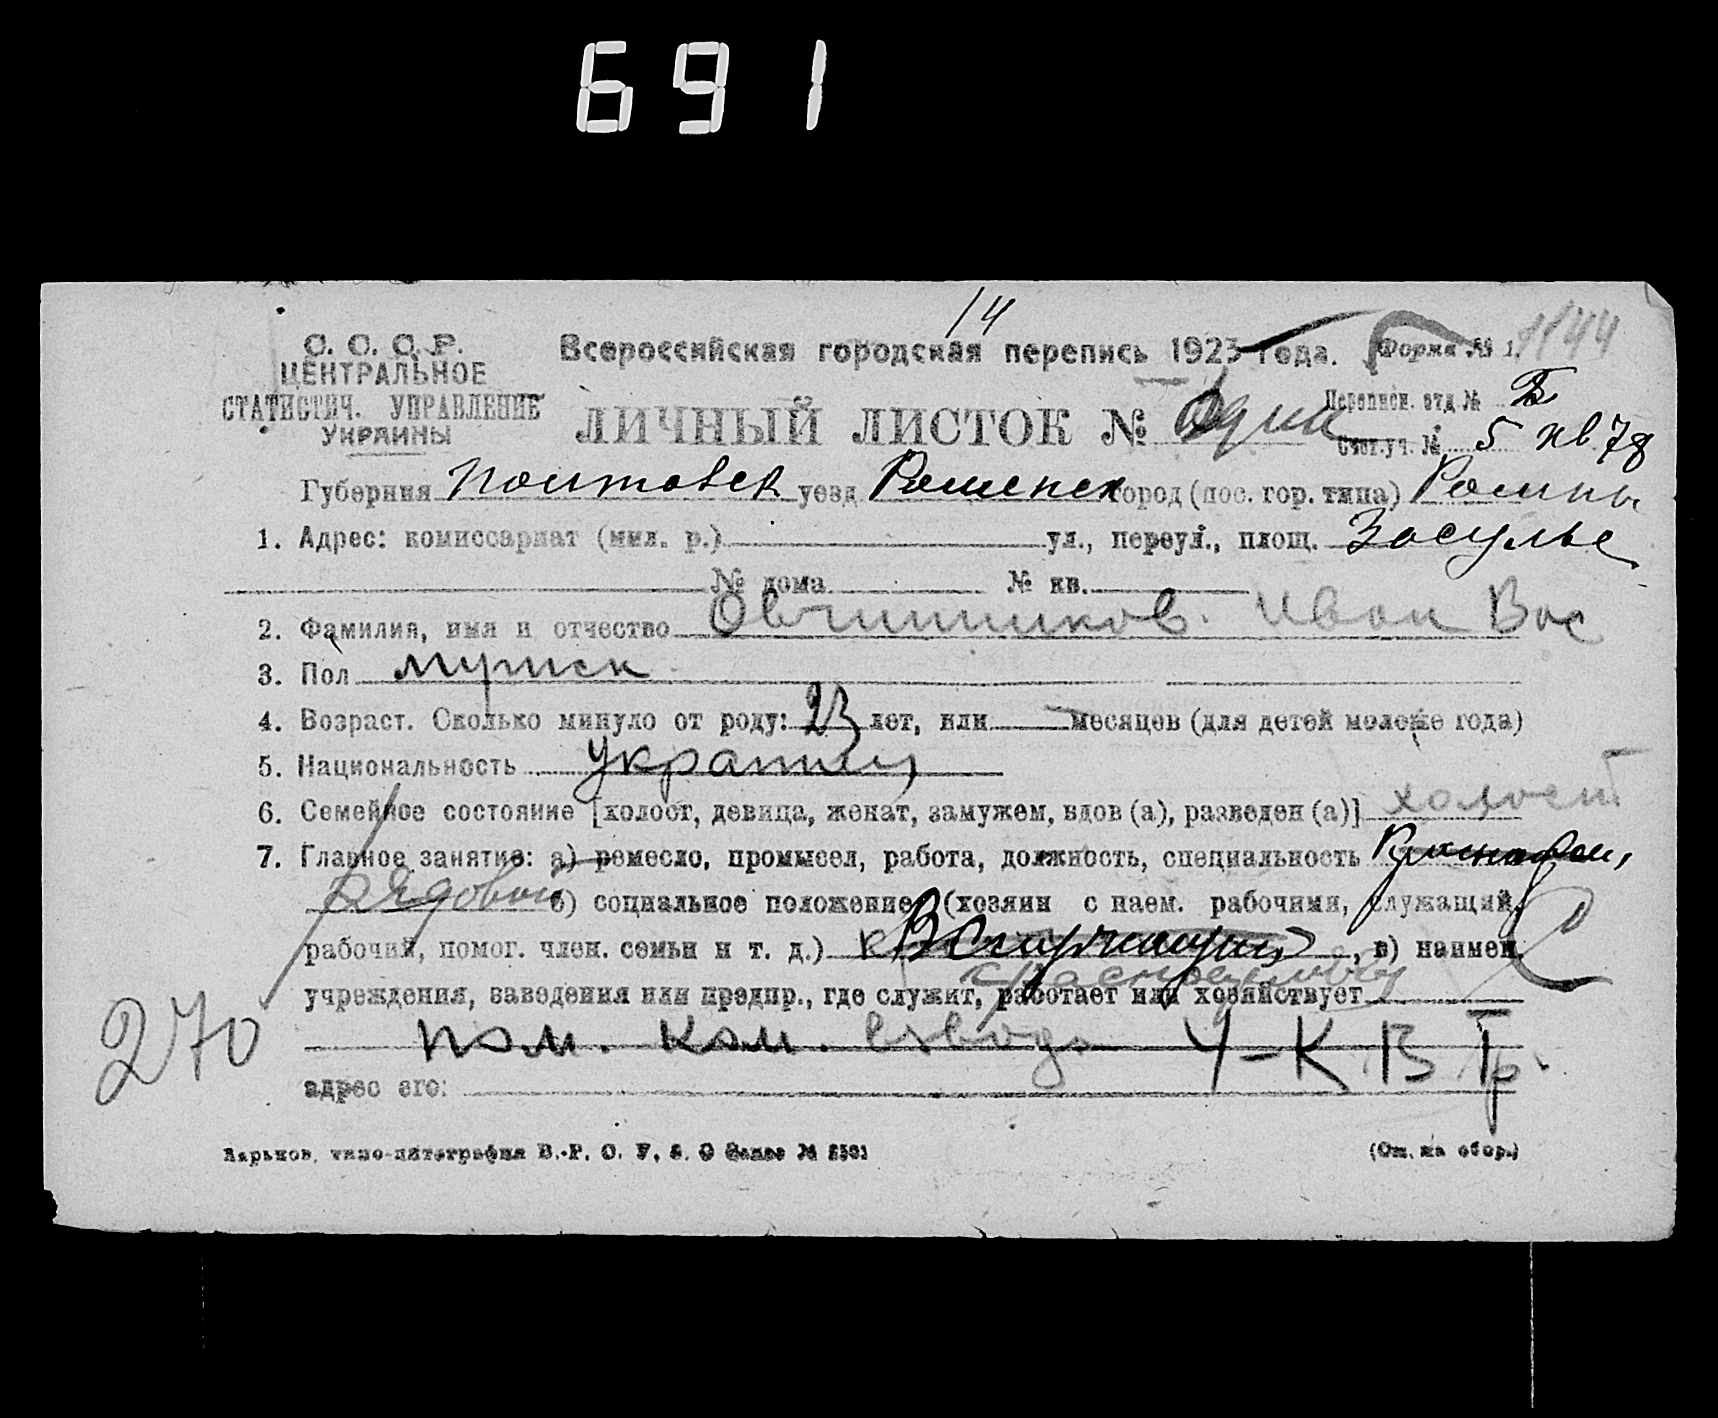 691
14
С. С. С. Р.
ЦЕНТРАЛЬНОЕ
СТАТИСТИЧ. УПРАВЛЕНИЕ
УКРАИНЫ
Всероссийская городская перепись 1923 года. Форма № 1. 1144
ЛИЧНЫЙ ЛИСТОК № Один
Переписн. отд № Б
Счет. уч. № 5 кв 78
Губерния Полтовск уезд Роменск город (пос. гор. типа) Ромны
1. Адрес: комиссариат (мил. р.) ул., переул., площ. Засулье
№ дома № кв.
2. Фамилия, имя и отчество Овчинников Иван Вас
3. Пол мужск
4. Возраст. Сколько минуло от роду: 23 лет, или месяцев (для детей моложе года)
5. Национальность украинец
6. Семейное состояние [холост, девица, женат, замужем, вдов (а), разведен (а)] холост
7. Главное занятие: а) ремесло, промысел, работа, должность, специальность
рядовой б) социальное положение (хозяин с наем. рабочими, служащий,
рабочий, помог. член. семьи и т. д.) , в) наимен.
учреждения, заведения или предпр., где служит, работает или хозяйствует
пом. ком. взвода У-К В Тр.
270
адрес его:
Харьков, типо-литография В.-Р. О. У. В. О Заказ №
(См. на обор.)